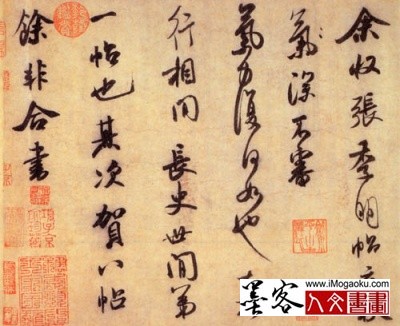 余收張季明帖云秋
氣深不審
氣力復何如也
行相間 長史世間第
一帖也其次賀八帖
餘非合書
www.iMogaoku.com
墨客
人文書畫